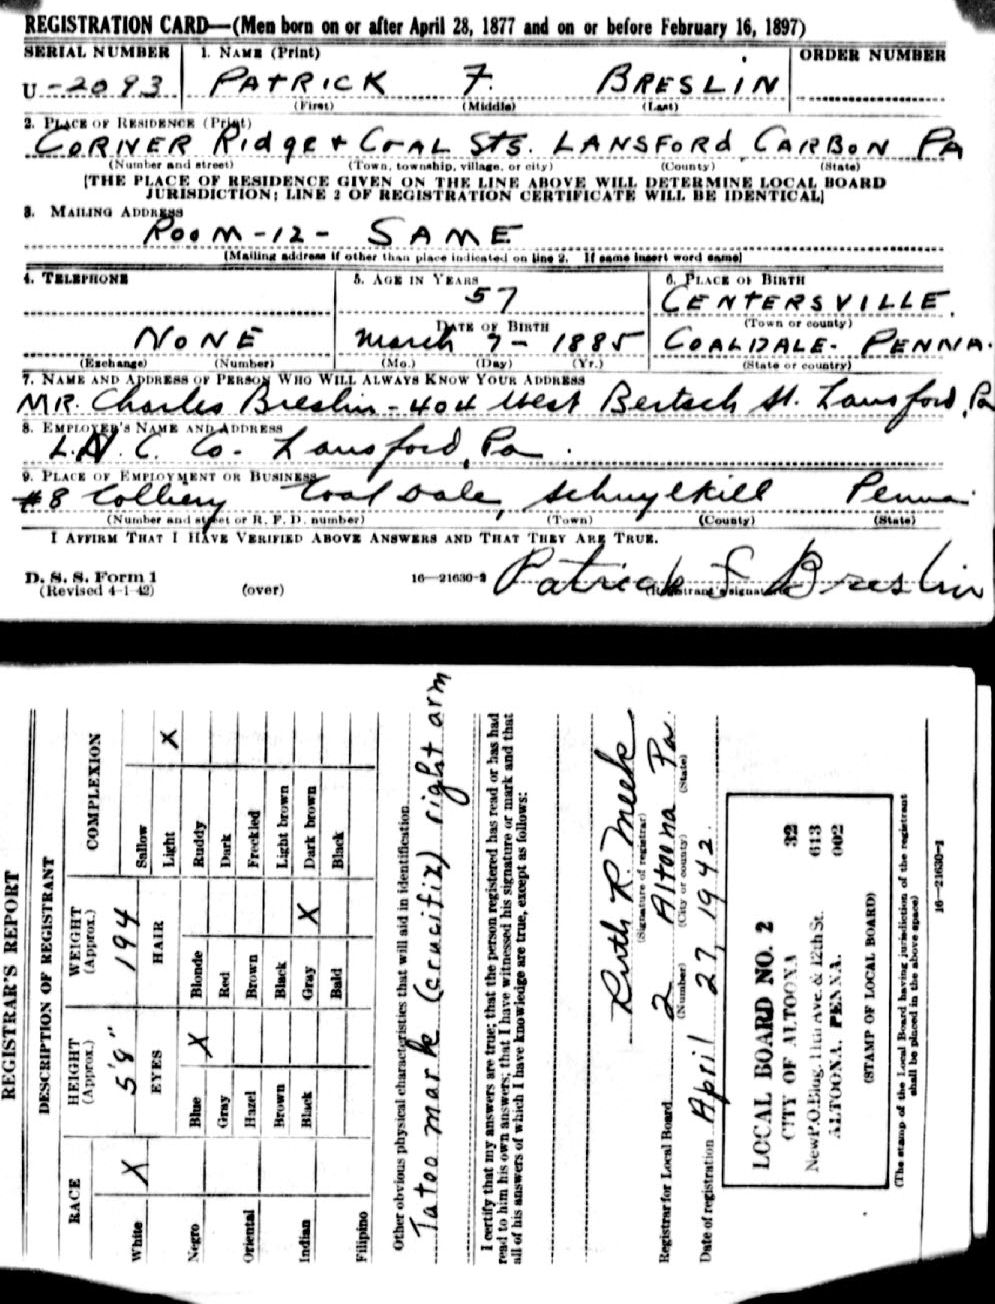 REGISTRATION CARD—(Men born on or after April 28, 1877 and on or before February 16, 1897)
SERIAL NUMBER 1. NAME (Print) ORDER NUMBER
U-2093 PATRICK F. BRESLIN
(First) (Middle) (Last)
2. PLACE OF RESIDENCE (Print)
CORNER Ridge + COAL STS. LANSFORD CARBON PA
(Number and street) (Town, township, village, or city) (County) (State)
[THE PLACE OF RESIDENCE GIVEN ON THE LINE ABOVE WILL DETERMINE LOCAL BOARD
JURISDICTION; LINE 2 OF REGISTRATION CERTIFICATE WILL BE IDENTICAL]
3. MAILING ADDRESS
ROOM-12- SAME
(Mailing address if other than place indicated on line 2. If same insert word same)
4. TELEPHONE 5. AGE IN YEARS 6. PLACE OF BIRTH
57 CENTERSVILLE,
DATE OF BIRTH (Town or county)
NONE March 7- 1885 COALDALE- PENNA.
(Exchange) (Number) (Mo.) (Day) (Yr.) (State or country)
7. NAME AND ADDRESS OF PERSON WHO WILL ALWAYS KNOW YOUR ADDRESS
MR. Charles Breslin-404 West Bertsch St. Lansford, Pa
8. EMPLOYER'S NAME AND ADDRESS
L.N. C. Co. Lansford, Pa.
9. PLACE OF EMPLOYMENT OR BUSINESS
#8 Colliery Coal Dale, Schuylkill Penna.
(Number and street or R. F. D. number) (Town) (County) (State)
I AFFIRM THAT I HAVE VERIFIED ABOVE ANSWERS AND THAT THEY ARE TRUE.
D. S. S. Form 1
(Revised 4-1-42) (over) 16—21630-2 Patrick F Breslin
(Registrant's signature)
REGISTRAR'S REPORT
DESCRIPTION OF REGISTRANT
RACE HEIGHT (Approx.) WEIGHT (Approx.) COMPLEXION
5'8" 194
EYES HAIR
White X Sallow
Light X
Negro Blue X Blonde Ruddy
Gray Red Dark
Oriental Hazel Brown Freckled
Brown Black Light brown
Indian Black Gray X Dark brown
Bald Black
Filipino
Other obvious physical characteristics that will aid in identification
Tatoo mark (crucifix) right arm
I certify that my answers are true; that the person registered has read or has had
read to him his own answers; that I have witnessed his signature or mark and that
all of his answers of which I have knowledge are true, except as follows:
Ruth R. Meek
(Signature of registrar)
Registrar for Local Board 2 Altoona Pa.
(Number) (City or county) (State)
Date of registration April 27, 1942.
LOCAL BOARD NO. 2 32
CITY OF ALTOONA 613
New P.O. Bldg. 11th Ave. & 12th St. 002
ALTOONA, PENNA.
(STAMP OF LOCAL BOARD)
(The stamp of the Local Board having jurisdiction of the registrant
shall be placed in the above space)
16—21630-1